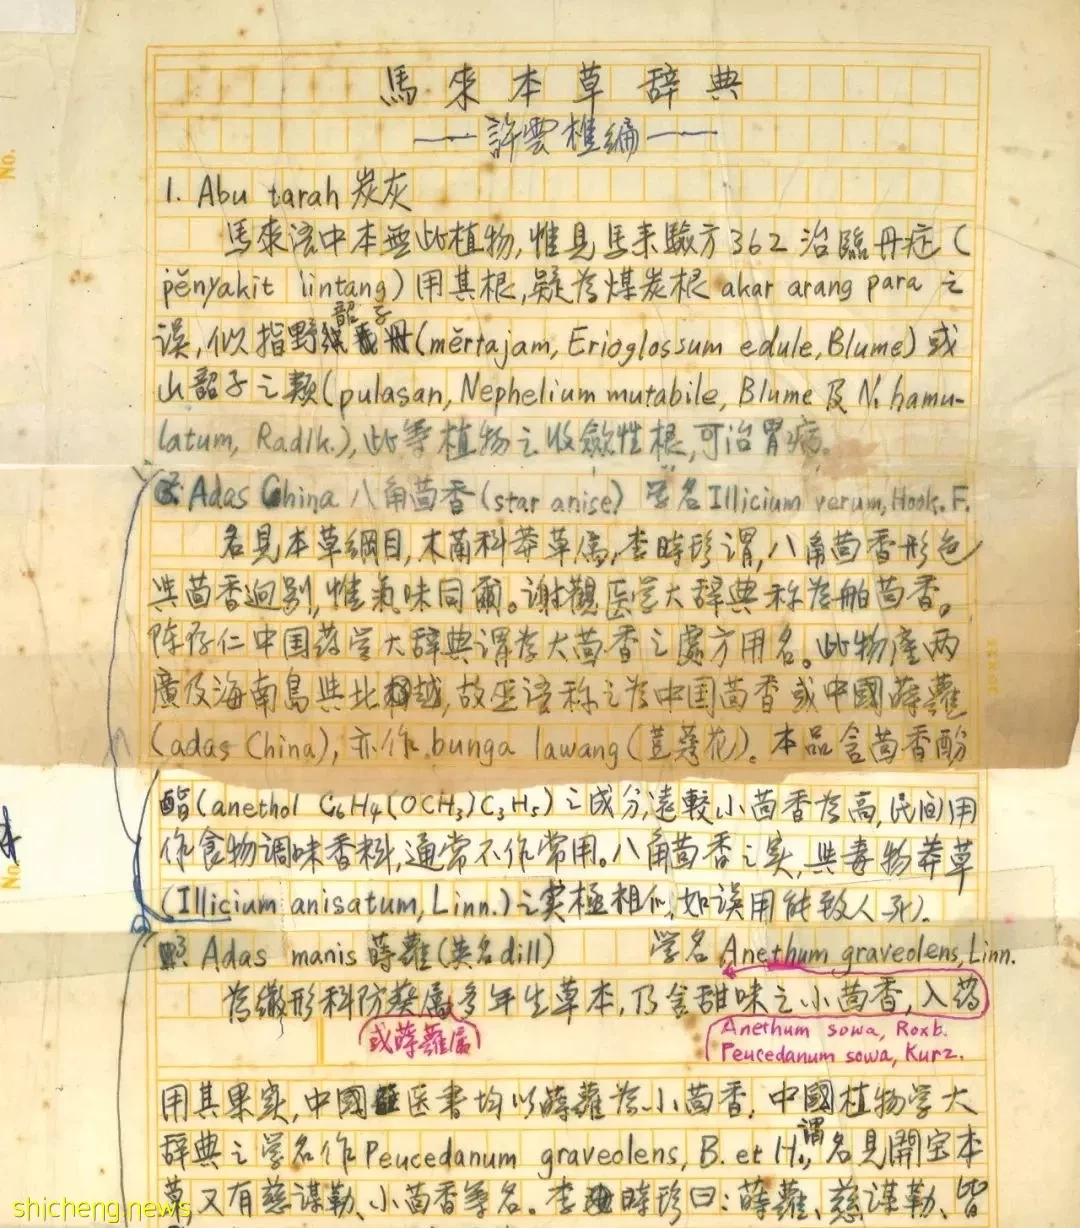 馬來本草辞典
——許雲樵編——
1. Abu tarah 炭灰
馬來语中本無此植物,惟見馬来驗方362治臨丹症(
pĕnyakit lintang)用其根,疑为煤炭根 akar arang para 之
误,似指野韶子(mĕrtajam, Erioglossum edule, Blume)或
山韶子之類(pulasan, Nephelium mutabile, Blume 及 N. hamu-
latum, Radlk.),此等植物之收斂性根,可治胃病。
2. Adas China 八角茴香(star anise) 学名 Illicium verum, Hook. F.
名見本草綱目,木蘭科莽草属,李時珍謂,八角茴香形色
與茴香迥别,惟氣味同爾。谢觀医学大辞典称为舶茴香。
陈存仁中国药学大辞典謂为大茴香之處方用名。此物產两
廣及海南島與北越,故巫语称之为中国茴香或中國蒔蘿
(adas China),亦作 bunga lawang(荳蔻花)。本品含茴香酚
酯(anethol C6H4(OCH3)C3H5)之成分,遠較小茴香为高,民间用
作食物调味香料,通常不作常用。八角茴香之实,與毒物莽草
(Illicium anisatum, Linn.)之实極相似,如误用能致人死).
3. Adas manis 蒔蘿(英名dill) 学名 Anethum graveolens, Linn.
为繖形科防葵属多年生草本,乃含甜味之小茴香,入药
或蒔蘿属
Anethum sowa, Roxb.
Peucedanum sowa, Kurz.
用其果实,中國医書均以蒔蘿为小茴香.中國植物学大
辞典之学名作 Peucedanum graveolens, B. et H., 謂名見開宝本
草,又有慈谋勒、小茴香等名。李時珍曰:蒔蘿、慈谋勒、皆
No.
No.
shicheng.news